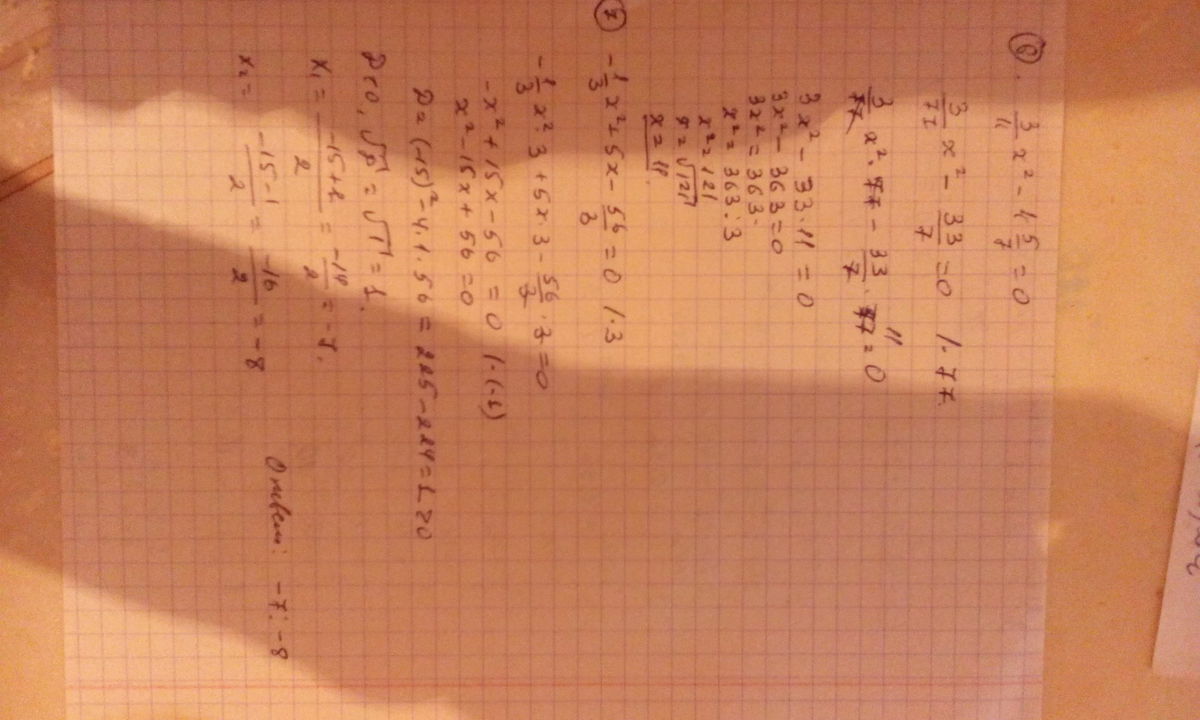 6.
3/11 x² - 4 5/7 = 0
3/11 x² - 33/7 = 0 | · 77.
3/11 x² · 77 - 33/7 · 77 = 0
3x² - 33 · 11 = 0
3x² - 363 = 0
3x² = 363.
x² = 363 : 3
x² = 121
x = √121
x = 11.
7
-1/3 x² + 5x - 56/3 = 0 | · 3
-1/3 x² · 3 + 5x · 3 - 56/3 · 3 = 0
-x² + 15x - 56 = 0 | · (-1)
x² - 15x + 56 = 0
D = (-15)² - 4 · 1 · 56 = 225 - 224 = 1 > 0
D > 0, √D = √1 = 1.
x₁ = (-15+1)/2 = -14/2 = -7.
x₂ = (-15-1)/2 = -16/2 = -8
Ответ: -7; -8